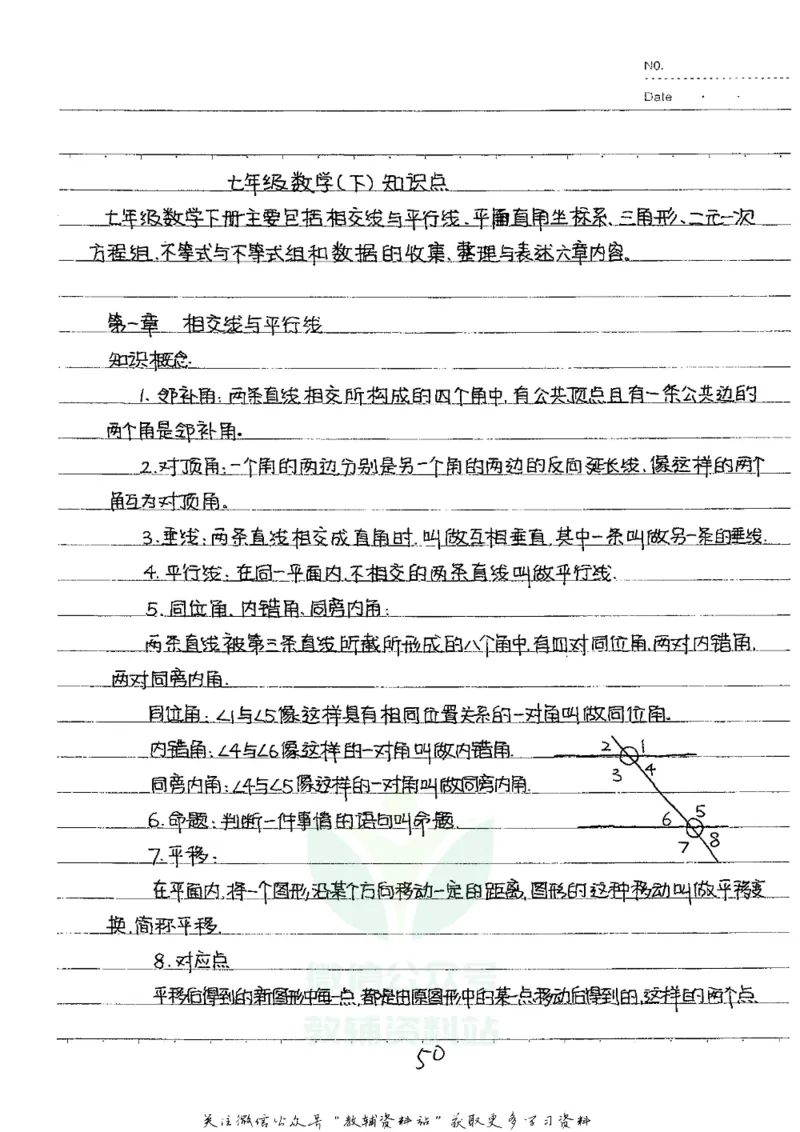 NO.
Date
七年级数学(下)知识点
七年级数学下册主要包括相交线与平行线、平面直角坐标系、三角形、二元一次
方程组、不等式与不等式组和数据的收集、整理与表述六章内容。
第一章 相交线与平行线
知识概念
1. 邻补角:两条直线相交所构成的四个角中,有公共顶点且有一条公共边的
两个角是邻补角。
2.对顶角:一个角的两边分别是另一个角的两边的反向延长线,像这样的两个
角互为对顶角。
3.垂线:两条直线相交成直角时,叫做互相垂直,其中一条叫做另一条的垂线.
4.平行线:在同一平面内,不相交的两条直线叫做平行线.
5.同位角、内错角、同旁内角:
两条直线被第三条直线所截所形成的八个角中,有四对同位角,两对内错角,
两对同旁内角.
同位角:∠1与∠5像这样具有相同位置关系的一对角叫做同位角.
内错角:∠4与∠6像这样的一对角叫做内错角.
同旁内角:∠4与∠5像这样的一对角叫做同旁内角.
2 1
3 4
6.命题:判断一件事情的语句叫命题.
6 5
7 8
7.平移:
在平面内,将一个图形沿某个方向移动一定的距离,图形的这种移动叫做平移变
换,简称平移.
8.对应点
平移后得到的新图形中每一点,都是由原图形中的某一点移动后得到的,这样的两个点
微信公众号
教辅资料站
50
关注微信公众号"教辅资料站"获取更多学习资料